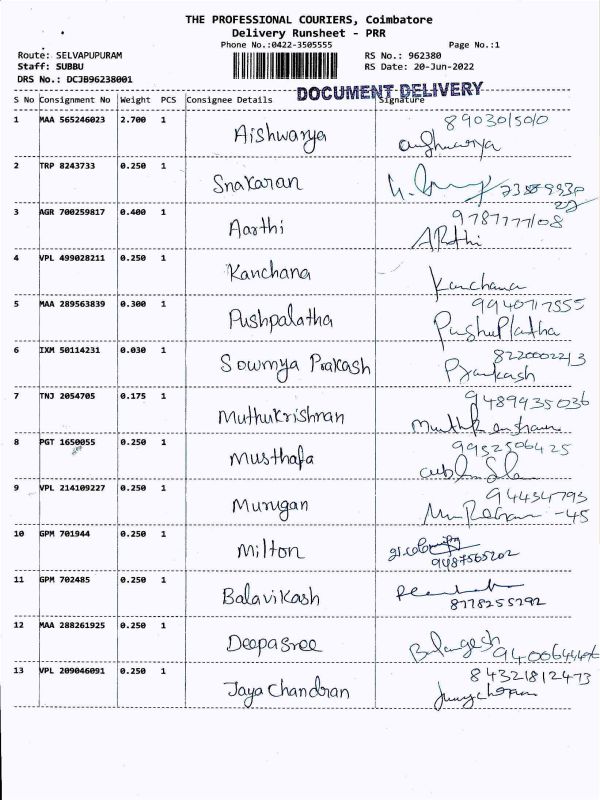 THE PROFESSIONAL COURIERS, Coimbatore
Delivery Runsheet - PRR
Phone No.:0422-3505555 Page No.:1
Route: SELVAPUPURAM RS No.: 962380
Staff: SUBBU RS Date: 20-Jun-2022
DRS No.: DCJB96238001
DOCUMENT DELIVERY
S No Consignment No Weight PCS Consignee Details Signature
8903015010
1 MAA 565246023 2.700 1 Aishwarya
2 TRP 8243733 0.250 1 Snakaran
3 AGR 700259817 0.400 1 Aarthi 9787777108
ARthi
4 VPL 499028211 0.250 1 Kanchana Kanchana
5 MAA 289563839 0.300 1 Pushpalatha 9940717555
6 IXM 50114231 0.030 1 Sowmya Prakash 8220002213
Prakash
7 TNJ 2054705 0.175 1 Muthukrishnan 9489935036
8 PGT 1650055 0.250 1 Musthafa 9952506425
9 VPL 214109227 0.250 1 Murugan 94434793
-45
10 GPM 701944 0.250 1 Milton
9487565202
11 GPM 702485 0.250 1 Balavikash
8778255292
12 MAA 288261925 0.250 1 Deepasree
13 VPL 209046091 0.250 1 Jaya Chandran 84321812473